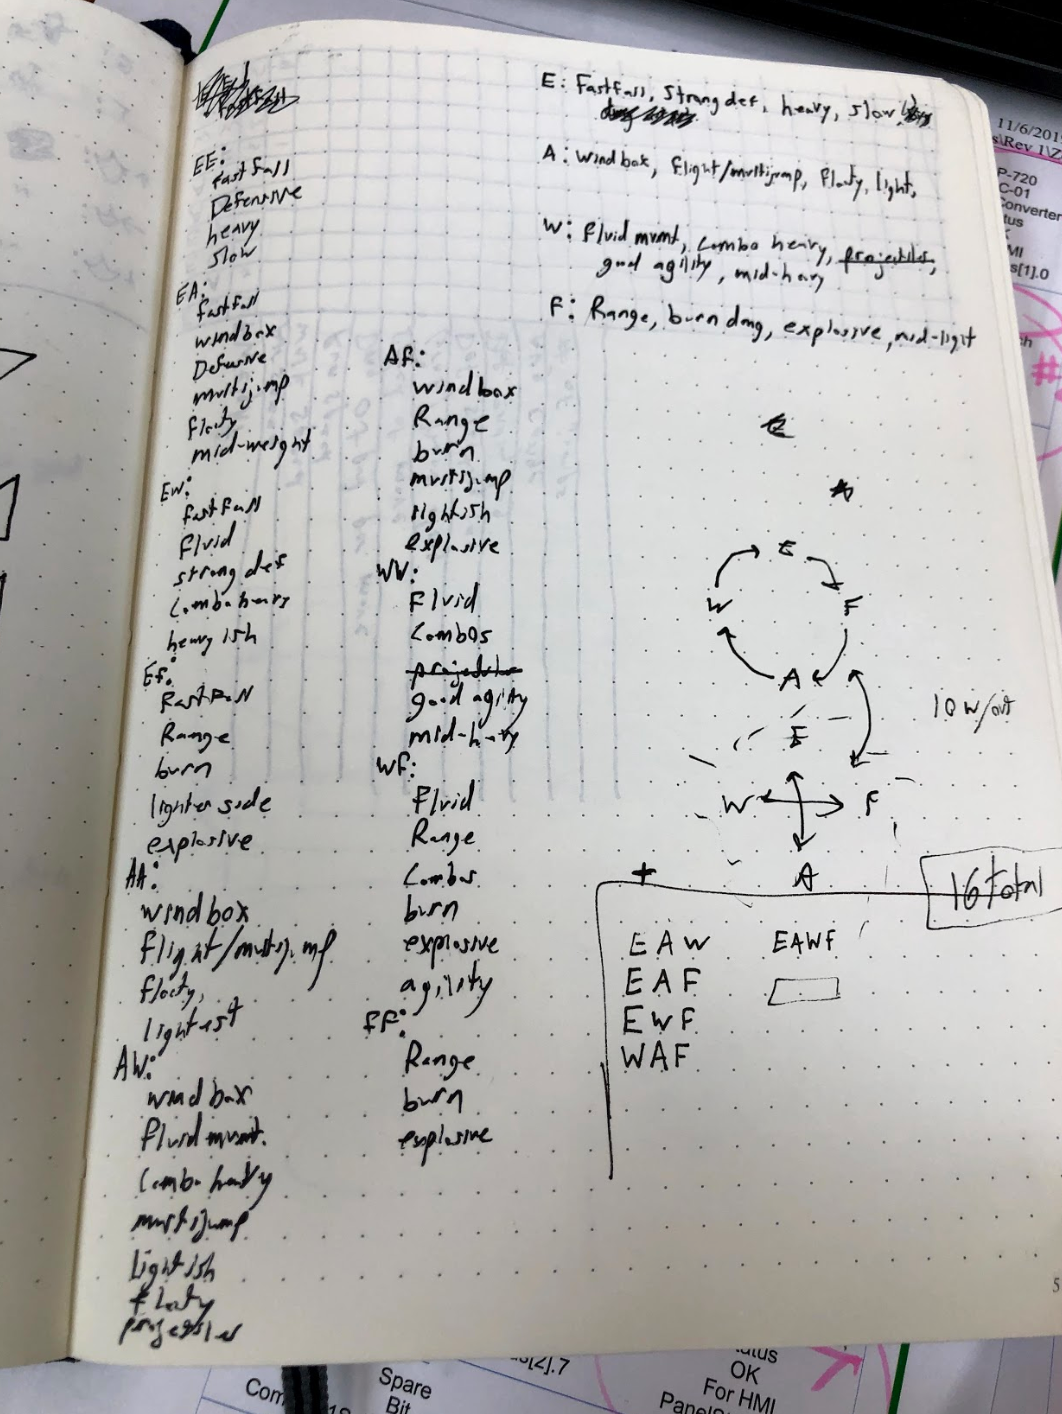 E: Fastfall, Strong def, heavy, slow
A: Windbox, flight/multijump, floaty, light,
W: fluid mvmt, combo heavy, projectiles,
good agility, mid-heavy
F: Range, burn dmg, explosive, mid-light
EE:
fastfall
Defensive
heavy
slow
EA:
fastfall
windbox
Defensive
multijump
floaty
mid-weight
EW:
fastfall
fluid
strong def
Combo heavy
heavy ish
EF:
Fastfall
Range
burn
lighter side
explosive
AA:
windbox
flight/multijump
floaty,
lightest
AW:
windbox
fluid mvmt.
Combo heavy
multijump
lightish
floaty
projectiles
AF:
windbox
Range
burn
multijump
lightish
explosive
WW:
Fluid
Combos
projectiles
good agility
mid-heavy
WF:
fluid
Range
Combos
burn
explosive
agility
FF:
Range
burn
explosive
E
W F
A
E
W F
A
10 w/out
+
16 total
EAW EAWF
EAF
EWF
WAF
5
11/6/201
s\Rev 1\Z
P-720
C-01
Converter
tus
K
MI
s[1].0
#
us[2].7
Com
Spare
Bit
tatus
OK
For HMI